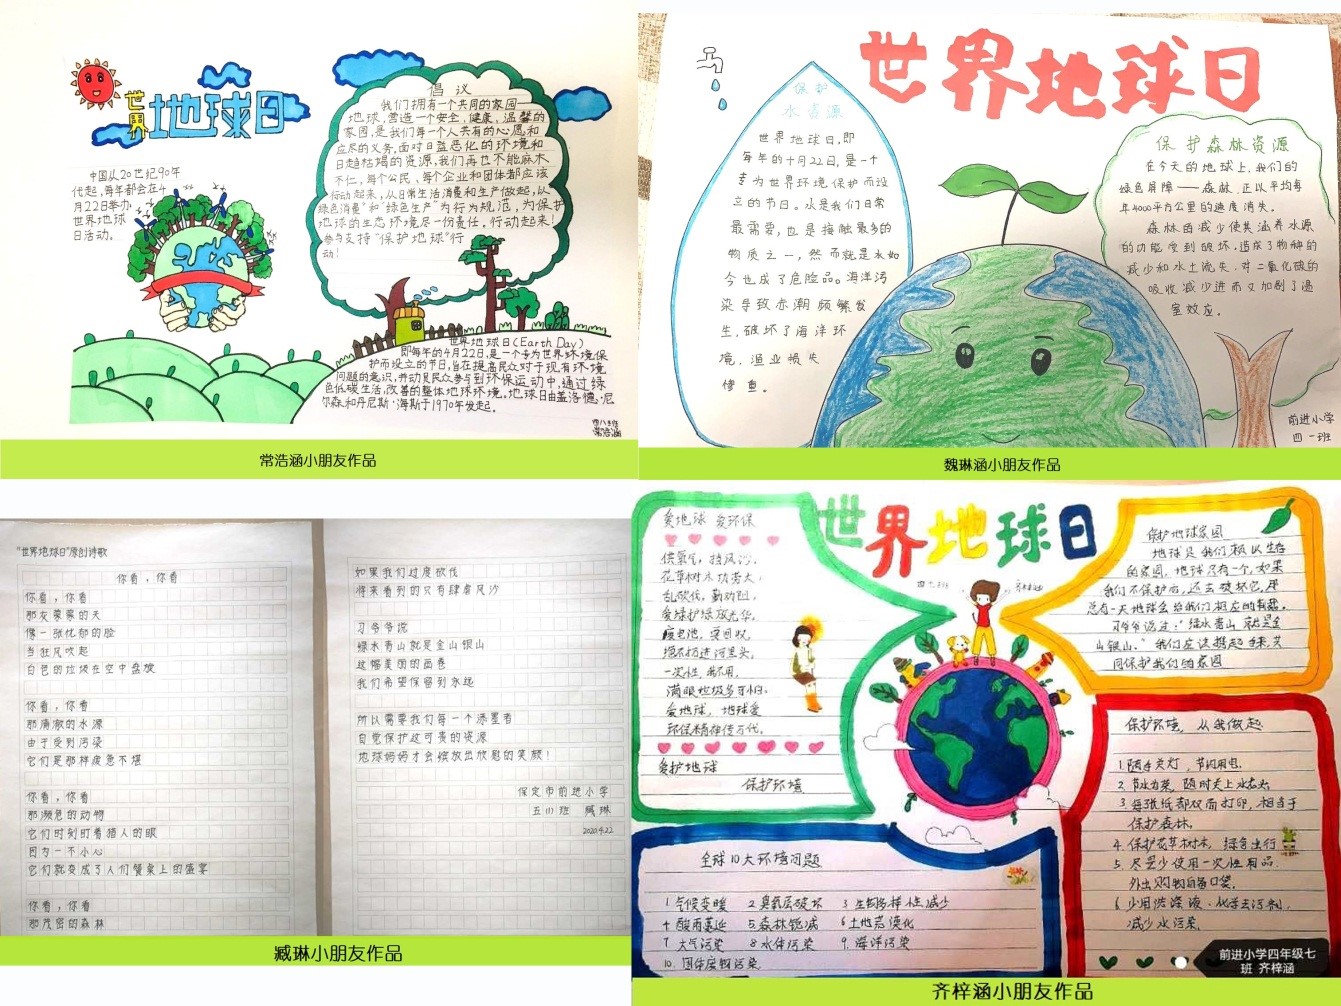 世界
地球日
中国从20世纪90年
代起,每年都会在4
月22日举办
世界地球
日活动。
倡议
我们拥有一个共同的家园——
地球,营造一个安全,健康,温馨的
家园,是我们每一个人共有的心愿和
应尽的义务,面对日益恶化的环境和
日趋枯竭的资源,我们再也不能麻木
不仁,每个公民、每个企业和团体都应该
行动起来,从日常生活消费和生产做起,从
绿色消费"和"绿色生产"为行为规范,为保护
地球的生态环境尽一份责任。行动起来!
参与支持"保护地球"行
动!
世界地球日(Earth Day)
即每年的4月22日,是一个专为世界环境保
护而设立的节日,旨在提高民众对于现有环境
问题的意识,并动员民众参与到环保运动中,通过绿
色低碳生活,改善的整体地球环境。地球日由盖洛德·尼
尔森和丹尼斯·海斯于1970年发起。
四八班
常浩涵
常浩涵小朋友作品
世界地球日
保护
水资源
世界地球日,即
每年的十月22日,是一个
专为世界环境保护而设
立的节日。水是我们日常
最需要,也是接触最多的
物质之一,然而就是水如
今也成了危险品。海洋污
染导致赤潮频繁发
生,破坏了海洋环
境,渔业损失
惨重。
保护森林资源
在今天的地球上,我们的
绿色屏障——森林,正以平均每
年4000平方公里的速度消失。
森林的减少使其涵养水源
的功能受到破坏,造成了物种的
减少和水土流失,对二氧化碳的
吸收减少进而又加剧了温
室效应。
前进小学
四一班
魏琳涵小朋友作品
"世界地球日"原创诗歌
你看,你看
你看,你看
那灰蒙蒙的天
像一张忧郁的脸
当狂风吹起
白色的垃圾在空中盘旋
你看,你看
那滴澈的水源
由于受到污染
它们是那样疲惫不堪
你看,你看
那濒危的动物
它们时刻盯着猎人的眼
因为一不小心
它们就变成了人们餐桌上的盛宴
你看,你看
那茂密的森林
如果我们过度砍伐
将来看到的只有肆虐风沙
习爷爷说
绿水青山就是金山银山
这幅美丽的画卷
我们希望保留到永远
所以需要我们每一个添墨者
自觉保护这可贵的资源
地球妈妈才会绽放出欣慰的笑颜!
保定市前进小学
五(1)班 臧琳
2020.4.22
臧琳小朋友作品
世界地球日
四七班
齐梓涵
爱地球 爱环保
供氧气,挡风沙,
花草树木功劳大,
乱砍伐,勤劝阻,
爱绿护绿放光华,
废电池,要回收,
随不扔进河里头,
一次性,我不用,
满眼垃圾多可怕,
爱地球,地球爱
环保精神传万代。
爱护地球
保护环境
保护地球家园
地球是我们赖以生存
的家园,地球只有一个,如果
我们不保护它,还去破坏它,那
总有一天地球会给我们相应的报应。
习爷爷说过:"绿水青山,就是金
山银山。"我们应该携起手来,共
同保护我们的家园
全球10大环境问题
1 气候变暖 2 臭氧层破坏 3 生物多样性减少
4 酸雨蔓延 5 森林锐减 6 土地荒漠化
7 大气污染 8 水体污染 9. 海洋污染
10. 固体废物污染
保护环境,从我做起
1. 随手关灯,节约用电。
2. 节水为荣,随时关上水龙头
3. 每张纸都双面打印,相当于
保护森林。
4. 保护花草树木,绿色出行
5. 尽量少使用一次性用品.
外出购物自备口袋。
6 少用洗涤液、化学去污剂,
减少水污染。
前进小学四年级七
班 齐梓涵
齐梓涵小朋友作品